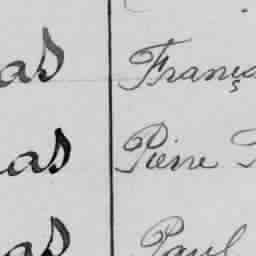 as Franç
as Pierre
as Paul